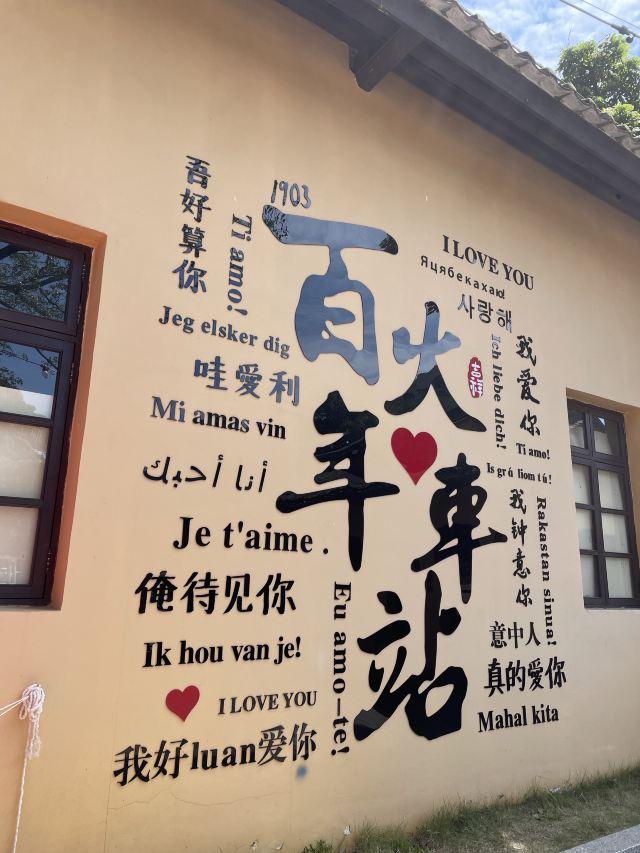 1903
百年
火車站
吾好算你
Ti amo!
Jeg elsker dig
哇愛利
Mi amas vin
أنا أحبك
Je t'aime .
俺待见你
Ik hou van je!
I LOVE YOU
我好luan爱你
Eu amo-te!
I LOVE YOU
Яцябекахаю!
사랑해
Ich liebe dich!
我爱你
Ti amo!
Is grá liom tú!
我钟意你
Rakastan sinua!
意中人
真的爱你
Mahal kita